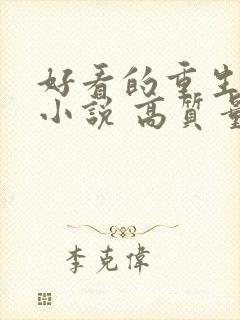 好看的重生
小說 高質量
李克偉